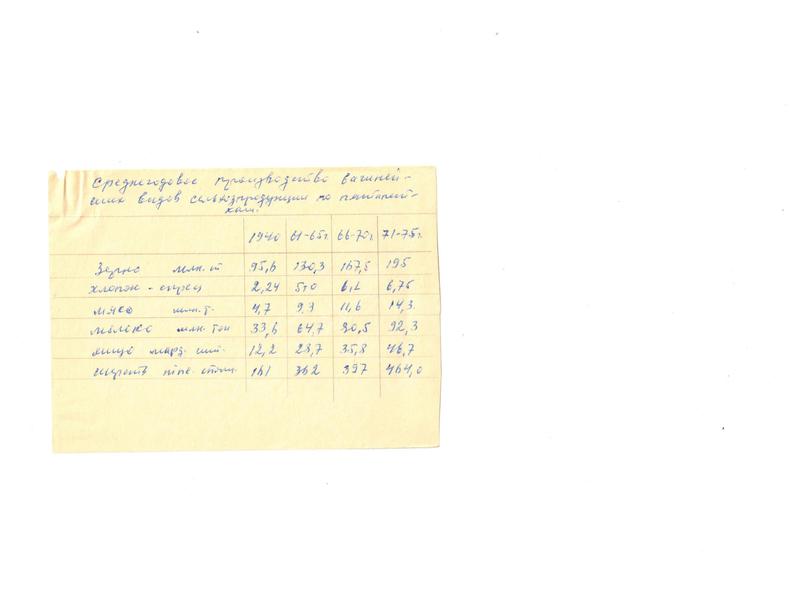 Среднегодовое производство важней-
ших видов сельхозпродукции по пятилет-
кам.
1940 61-65г. 66-70г. 71-75г.
Зерно млн.т 95,6 130,3 167,5 195
хлопок-сырец 2,24 5,0 6,1 6,75
мясо млн.т. 4,7 9,3 11,6 14,3
молоко млн.тон 33,6 64,7 80,5 92,3
яйцо млрд. шт. 12,2 28,7 35,8 46,7
шерсть тыс. тонн. 161 362 397 464,0